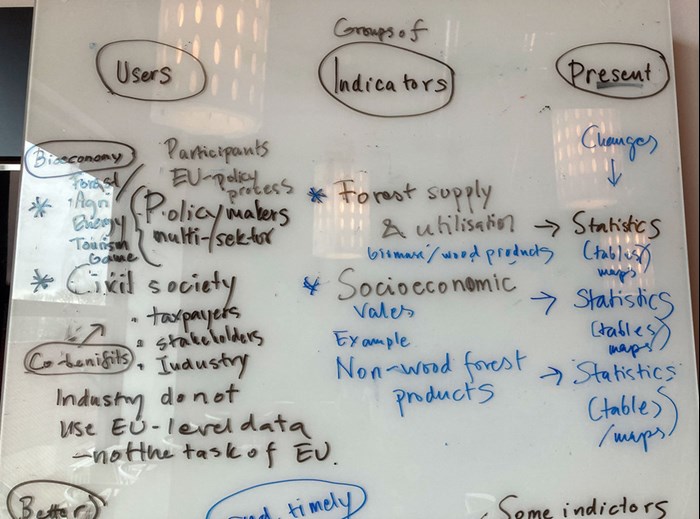 Users
Bioeconomy
Participants
EU-policy
process
Forest
* Agri
Energy
Tourism
Game
Policymakers
multi-/sektor
* Civil society
• taxpayers
• stakeholders
• Industry
Co-benifits
Industry do not
use EU-level data
– not the task of EU.
Better
Groups of
Indicators
* Forest supply
& utilisation →
biomass/wood products
* Socioeconomic →
Vales
Example
Non-wood forest →
products
and timely
Present
Changes
↓
Statistics
(tables)
maps
Statistics
(tables
maps)
Statistics
(tables)
/maps)
Some indictors